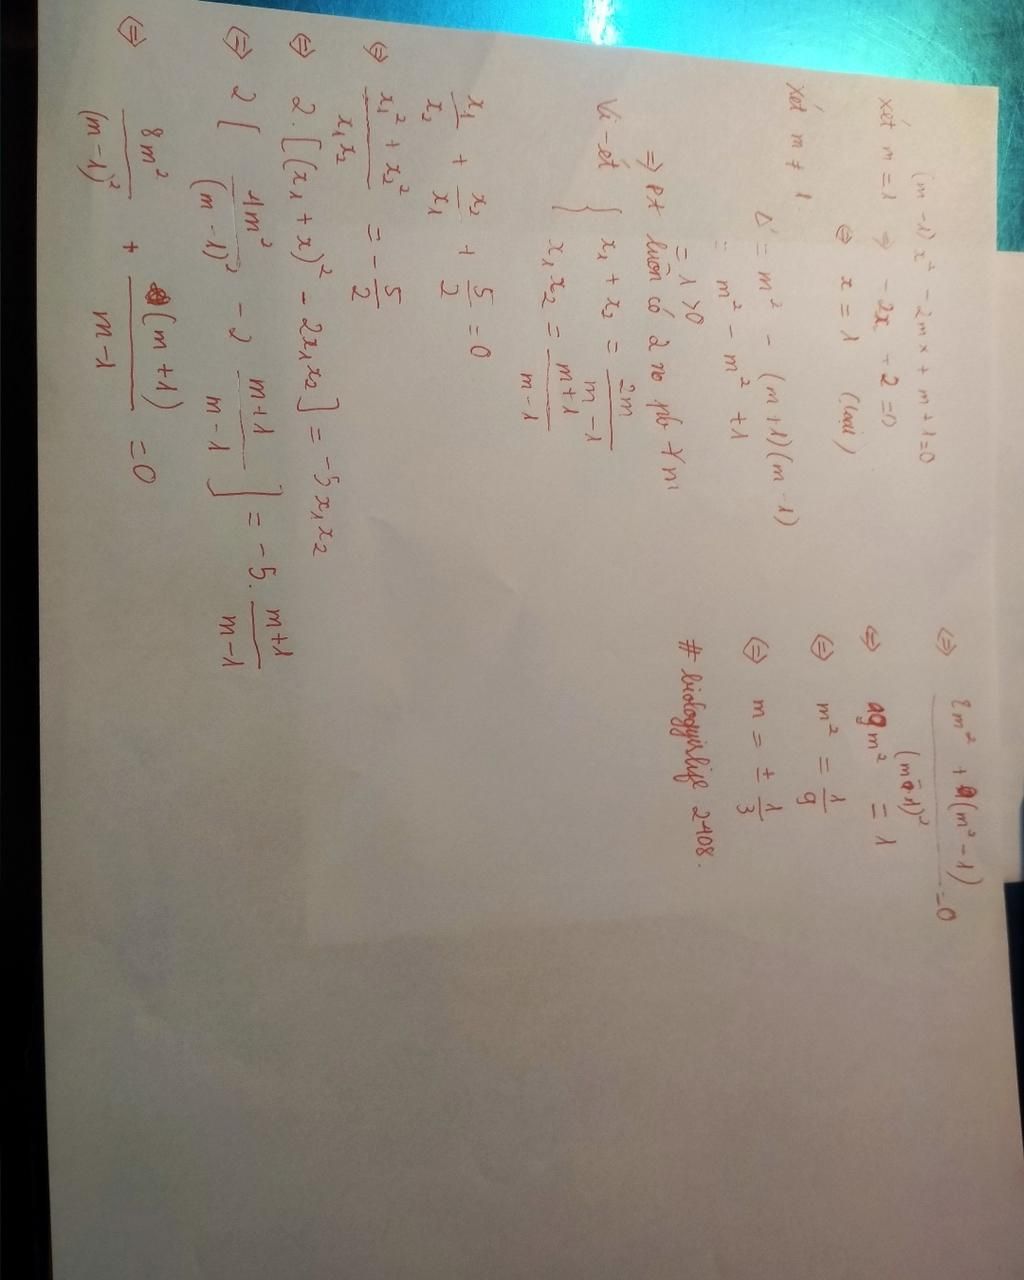 (m - 1) x² - 2mx + m + 1 = 0
Xét m = 1 => - 2x + 2 = 0
<=> x = 1 (loại)
Xét m ≠ 1.
Δ' = m² - (m + 1)(m - 1)
= m² - m² + 1
= 1 > 0
=> PT luôn có 2 no pb ∀ m
Vi-ét { x₁ + x₂ = 2m / (m - 1)
x₁ x₂ = (m + 1) / (m - 1)
x₁/x₂ + x₂/x₁ + 5/2 = 0
<=> (x₁² + x₂²) / (x₁x₂) = - 5/2
<=> 2. [(x₁ + x)² - 2x₁x₂] = -5x₁x₂
<=> 2 [ 4m² / (m - 1)² - 2 (m + 1) / (m - 1) ] = -5. (m + 1) / (m - 1)
<=> 8m² / (m - 1)² + (m + 1) / (m - 1) = 0
<=> (8m² + (m² - 1)) / (m - 1)² = 0
<=> 9m² = 1
<=> m² = 1/9
<=> m = ± 1/3
# biologyislife 2408.